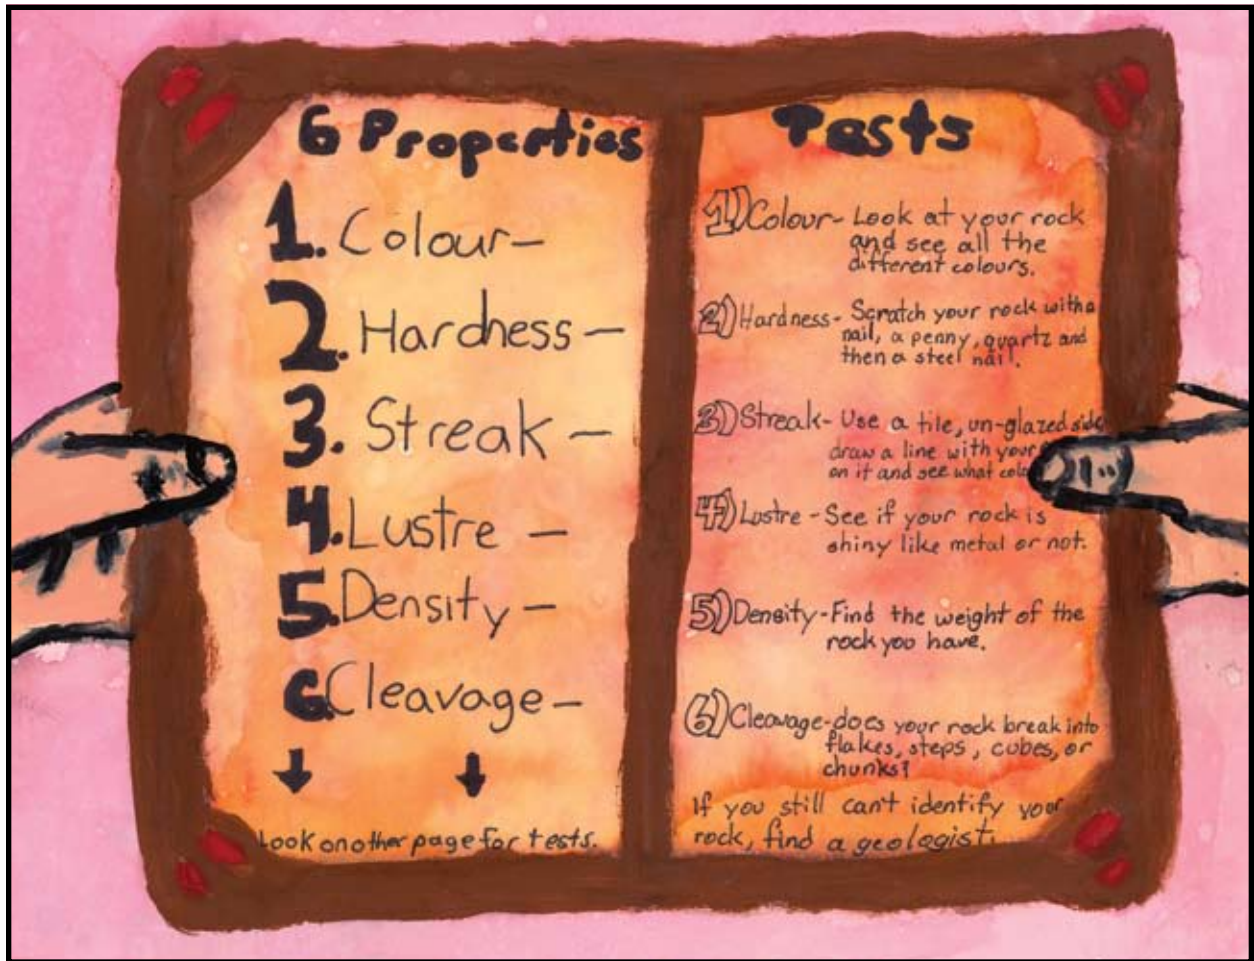 6 Properties
1. Colour-
2. Hardness-
3. Streak-
4. Lustre-
5. Density-
6. Cleavage-
Look on other page for tests.
Tests
1) Colour- Look at your rock
and see all the
different colours.
2) Hardness- Scratch your rock with a
nail, a penny, quartz and
then a steel nail.
3) Streak- Use a tile, un-glazed side
draw a line with your
on it and see what
4) Lustre- See if your rock is
shiny like metal or not.
5) Density- Find the weight of the
rock you have.
6) Cleavage- does your rock break into
flakes, steps, cubes, or
chunks?
If you still can't identify your
rock, find a geologist.